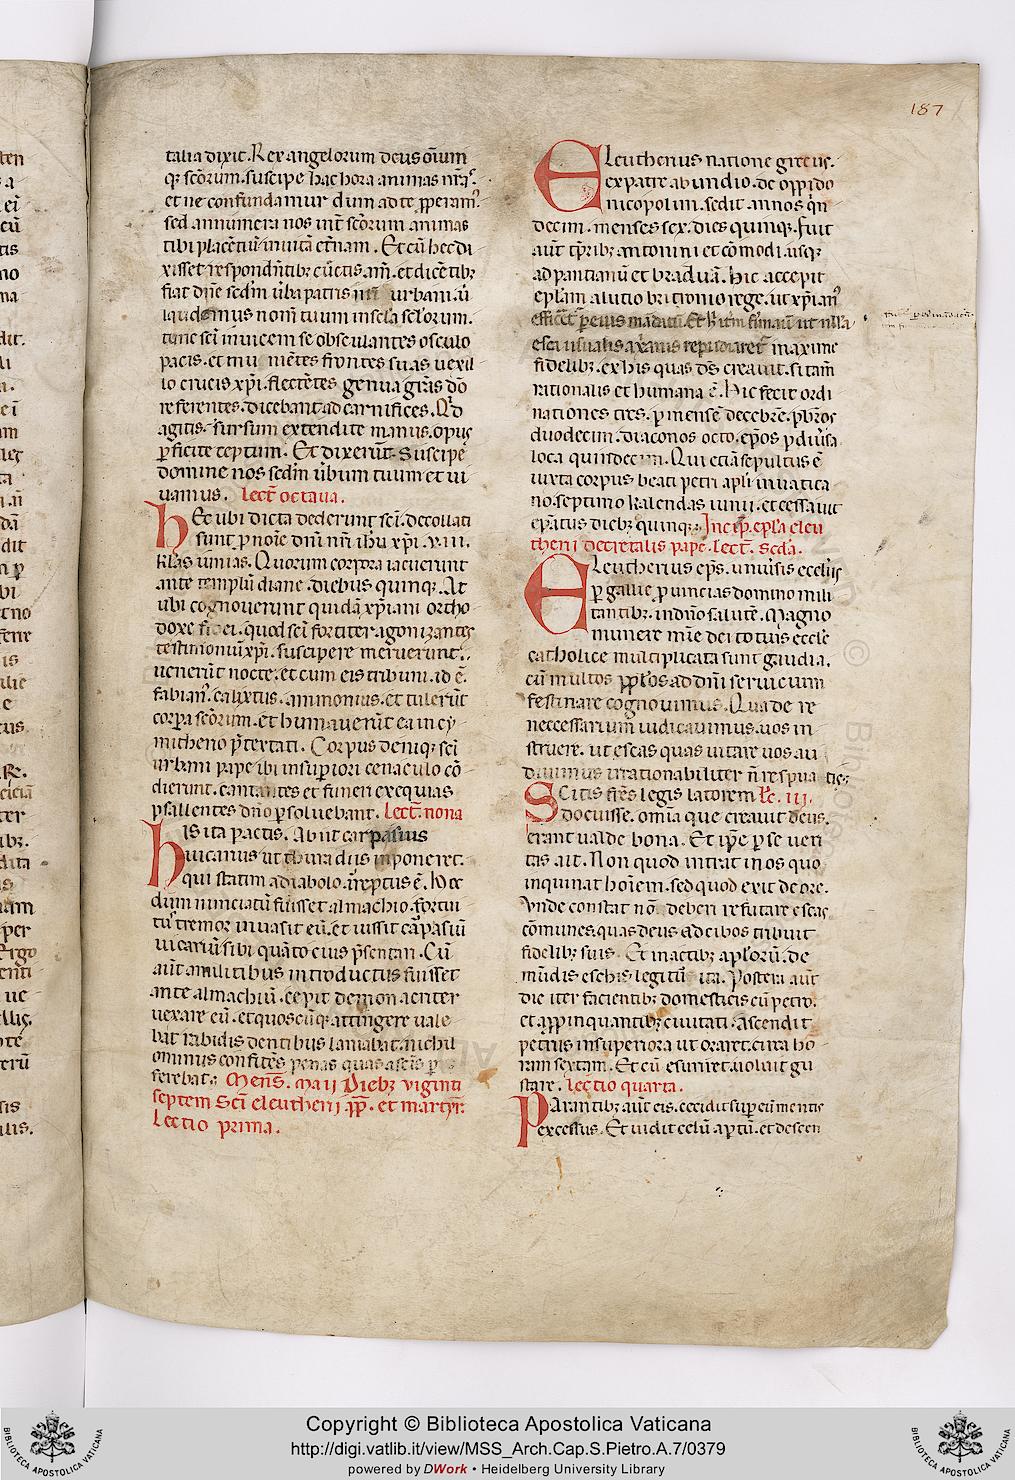 187
talia dixit. Rex angelorum deus om̅ium
q; sc̅orum. suscipe hac hora animas nr̅as.
et ne confundamur dum ad te p̱peram᾿.
sed annumera nos int̅ sc̅orum animas
tibi placentiū in uitā et̅nam. Et cū hec di
xisset respondn̅tib; cūctis am̅. et dicentib;
fiat dn̅e sedm̅ u̅ba patris nr̅i urbani
nom̅ tuum
tunc sc̅i inuicem se obsculantes osculo
pacis. et in u mentes frontes suas uexil
lo crucis xp̅i. flectētes genua gr̅as dō
referentes. dicebant ad carnifices. Qd̅
agitis. sursum extendite manus. opus
p̱ficite ceptum. Et dixerūt. Suscipe
domine nos sedm̅ u̅bum tuum et ui
uamus. lect̅ octaua.
Hec ubi dicta dederunt sc̅i. decollati
sunt. p̱ noīe dn̅i nr̅i ih̅u xp̅i. viii.
kl̅as iunias. Quorum corpora iacuerunt
ante templū diane. diebus quinq;. At
ubi cognouerunt quidā xp̅iani ortho
doxe fidei. quod sc̅i fortiter agonizantes
testimoniū xp̅i. suscipere meruerunt.
uenerūt nocte. et cum eis tribuni. id ē.
fabian᾿. calixtus. ammonius. et tulerūt
corpa sc̅orum. et humauerūt ea in cy
mitherio p̅textati. Corpus deniq; sc̅i
urbani pape ibi insup̱iori cenaculo cō
dierunt. cantantes et funeri exequias
psallentes dn̅o p̱soluebant. lect̅ nona
His ita pactis. Abiit carpasius
uicarius ut thura diis inponeret.
qui statim a diabolo arreptus ē. Hoc
dum nunciatū fuisset almachio. fortui
tu᾿ tremor inuasit eū. et iussit carpasiū
uicariū sibi quāto cius p̅sentari. Cū
aūt a militibus introductus fuisset
ante almachiū. cepit demon acriter
uexare eū. et quoscūq; attingere uale
bat rabidis dentibus laniabat. nichil
ominus confitēs penas quas a sc̅is p̱
ferebat. Mens̅. maii Diebz viginti
septem Sc̅i eleutherij pp̅. et martyr.
Lectio prima.
Eleutherius natione grecus.
ex patre abundio. de oppido
nicopolim. sedit annos q̅n
decim. menses sex. dies quinq;. Fuit
aūt tp̅rib; antonini et cōmodi. usq;
ad paritianū et braduā. Hic accepit
epl̅am a lutio britionio rege. ut xp̅ian᾿
efficeret p̱ eius mādatū. Et hic itm̅ firmauit ut nulla
esca usualis a xp̅ianis repudiaret᾿ maxime
fidelib;. ex his quas d̅s creauit. si tam̅
rationalis et humana ē. Hic fecit ordi
nationes tres. p̱ mensē decēbre. pb̅ros
duodecim. diaconos octo. ep̅os p̱ diu̅sa
loca quindecim. Qui etiā sepultus ē
iuxta corpus beati petri apl̅i in uatica
no. septimo kalendas iunii. et cessauit
ep̅atus dieb; quinq;. Incip̅. epl̅a eleu
therij decretalis pape. lect̅. scd̅a.
Eleutherius ep̅s. uniu̅sis eccl̅iis
p̱ gallie p̱uincias domino mili
tantib;. in dn̅o salutē. Magno
munere mīe dei totius eccl̅e
catholice multiplicata sunt gaudia.
cū multos pp̅l̅os ad dn̅i seruicium
festinare cognouimus. Qua de re
neccessarium iudicauimus. uos in
struere. ut escas quas uitare uos au
diuimus irrationabiliter n̅ respuatis.
Scitis fr̅es legis latorem lc̅. iii.
docuisse. omnia que creauit deus.
erant ualde bona. Et ip̅e p̱ se ueri
tas ait. Non quod intrat in os quo
inquinat hoīem. sed quod exit de ore.
Vnde constat nō deberi refutare escas
cōmunes. quas deus ad cibos tribuit
fidelib; suis. Et in actib; apl̅orū. de
mūdis eschis legitur̅ ita. Postera aūt
die iter facientib; domesticis cū petro.
et app̱inquantib; ciuitati. ascendit
petrus in sup̱iora ut oraret. circa ho
ram sextam. Et cū esuriret. uoluit gu
stare. lectio quarta.
Parantib; aūt eis. cecidit sup̱ eū mentis
excessus. Et uidit celū ap̱tū. et descen
Copyright © Biblioteca Apostolica Vaticana
http://digi.vatlib.it/view/MSS_Arch.Cap.S.Pietro.A.7/0379
powered by DWork • Heidelberg University Library
BIBLIOTECA APOSTOLICA VATICANA
BIBLIOTECA APOSTOLICA VATICANA